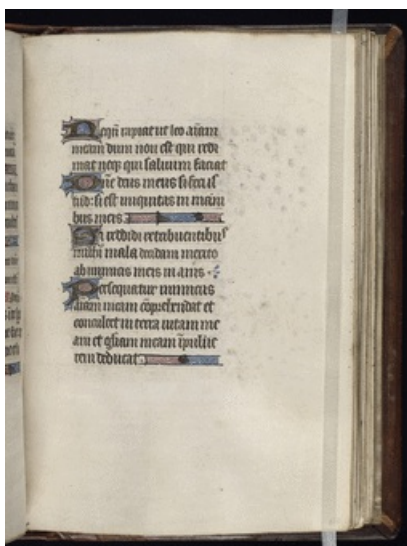 Nequn rapiat ut leo aiam
meam dum non est qui redi
mat neqz qui saluum faciat
Dne deus meus si feci is
tud: si est iniquitas in mani
bus meis.
Si reddidi retribuentibus
michi mala decidam merito
ab inimicis meis in anis
Persequatur inimicus
aiam meam coprehendat et
conculcet in terra uitam me
am et gliam meam i pulue
rem deducat